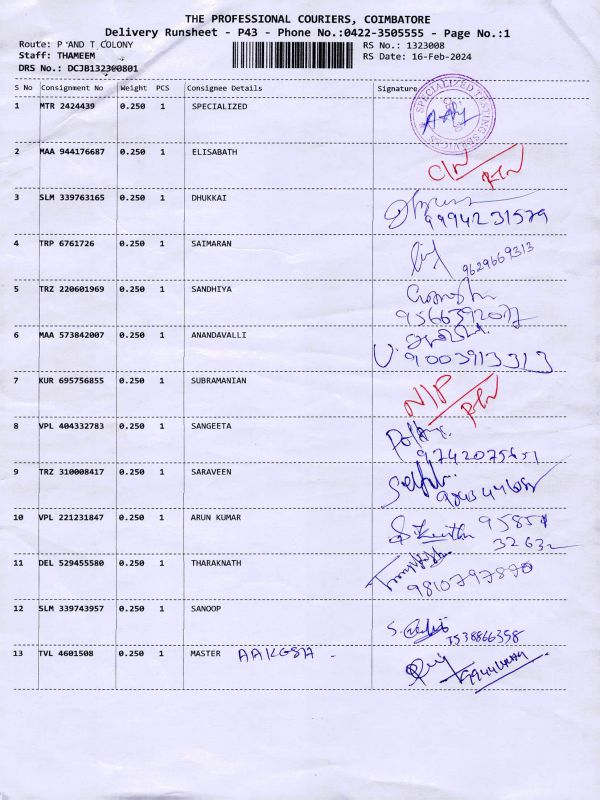 THE PROFESSIONAL COURIERS, COIMBATORE
Delivery Runsheet - P43 - Phone No.:0422-3505555 - Page No.:1
Route: P AND T COLONY RS No.: 1323008
Staff: THAMEEM RS Date: 16-Feb-2024
DRS No.: DCJB132300801
S No Consignment No Weight PCS Consignee Details Signature
1 MTR 2424439 0.250 1 SPECIALIZED
SPECIALIZED TESTING SERVICES
2 MAA 944176687 0.250 1 ELISABATH
3 SLM 339763165 0.250 1 DHUKKAI
9994231579
4 TRP 6761726 0.250 1 SAIMARAN
9629669313
5 TRZ 220601969 0.250 1 SANDHIYA
9566392077
6 MAA 573842007 0.250 1 ANANDAVALLI
9003913313
7 KUR 695756855 0.250 1 SUBRAMANIAN
N/P
8 VPL 404332783 0.250 1 SANGEETA
9742075651
9 TRZ 310008417 0.250 1 SARAVEEN
10 VPL 221231847 0.250 1 ARUN KUMAR
95854
32632
11 DEL 529455580 0.250 1 THARAKNATH
9810797890
12 SLM 339743957 0.250 1 SANOOP
7538866358
13 TVL 4601508 0.250 1 MASTER AAKGSH